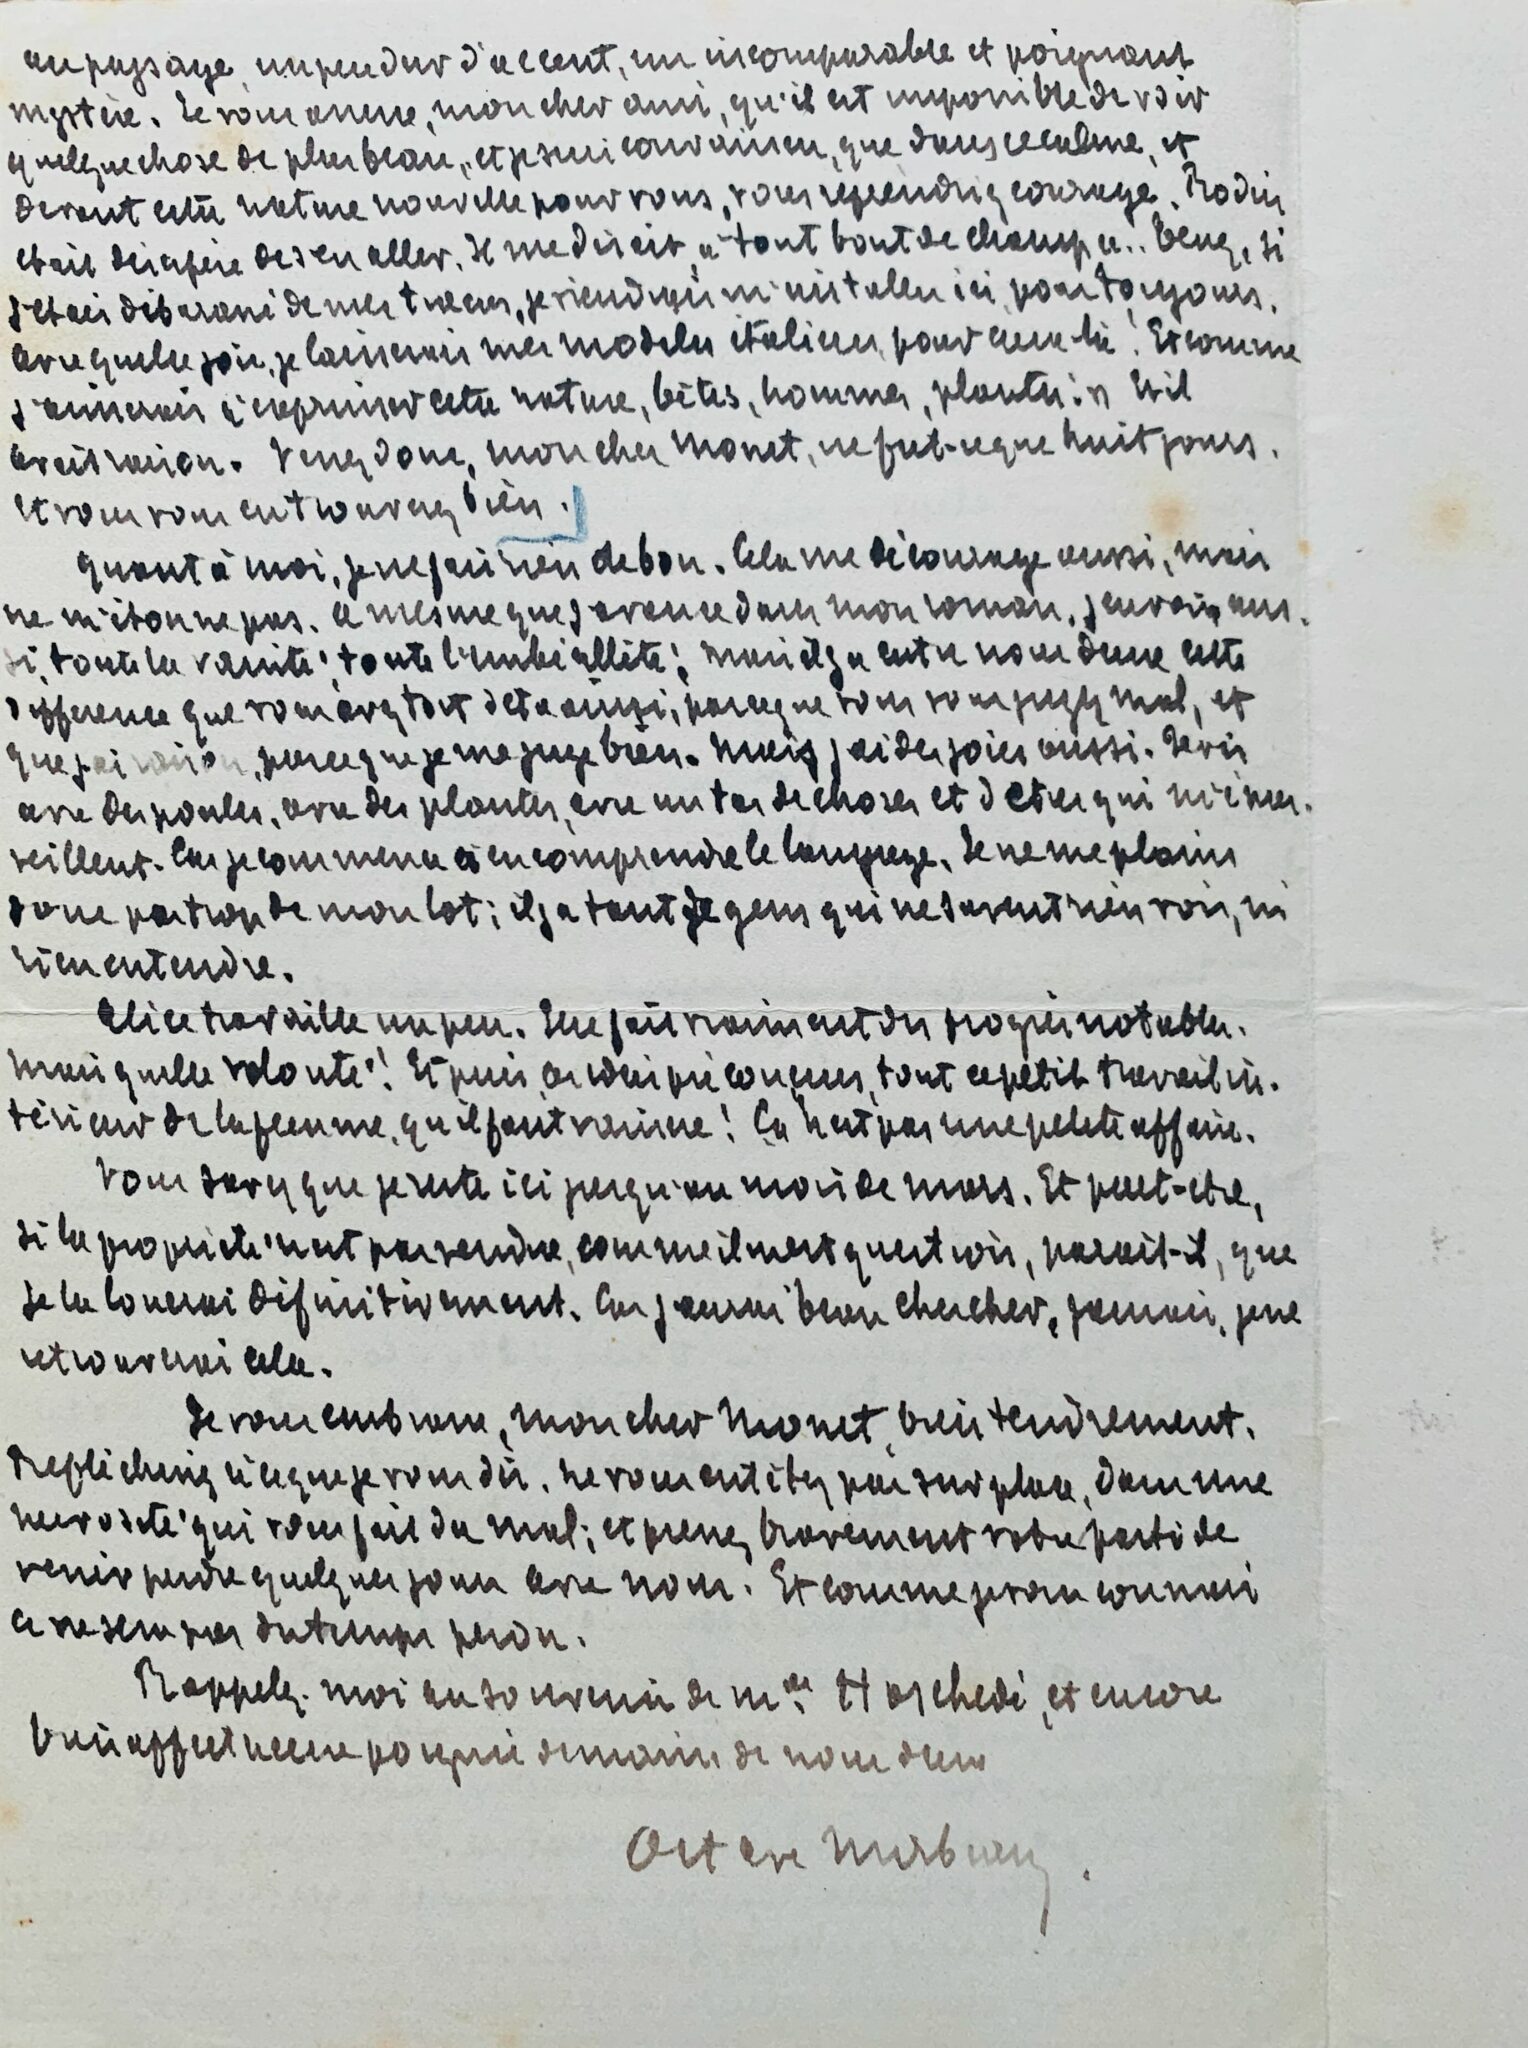 au paysage, un peu dur d'accent, un incomparable et poignant
mystère. Je vous assure, mon cher ami, qu'il est impossible de voir
quelque chose de plus beau, et je suis convaincu, que dans ce calme, et
devant cette nature nouvelle pour vous, vous reprendriez courage. Rodin
était désespéré de s'en aller. Il me disait, à tout bout de champ « .. Tenez, si
j'étais débarassé de mes travaux, je viendrais m'installer ici, pour toujours.
Avec quelle joie, je laisserais mes modèles italiens, pour ceux-là ! Et comme
j'aimerais à exprimer cette nature, bêtes, hommes, plantes : » Et il
avait raison. Venez donc, mon cher Monet, ne fut-ce que huit jours.
Et vous vous en trouverez bien.
Quant à moi, je ne fais rien de bon. Cela me décourage aussi, mais
ne m'étonne pas. A mesure que j'avance dans mon roman, j'en vois, aus-
si, toute la vanité, toute l'imbécillité ; mais il y a entre nous deux cette
différence que vous avez tort d'être ainsi, parce que vous vous jugez mal, et
que j'ai raison, parce que je me juge bien. Mais j'ai des joies aussi. Je vis
avec des poules, avec des plantes, avec un tas de choses et d'êtres qui m'émer-
veillent. Car je commence à en comprendre le langage. Je ne me plains
donc pas trop de mon lot ; il y a tant de gens qui ne savent rien voir, ni
rien entendre.
Alice travaille un peu. Elle fait vraiment des progrès notables.
Mais quelle volonté ! Et puis, ces idées préconçues, tout ce petit travail in-
térieur de la femme, qu'il faut vaincre ! Ça n'est pas une petite affaire.
Vous savez que je reste ici jusqu'au mois de mars. Et peut-etre,
si la propriété n'est pas vendue, comme il n'est question, parait-il, que
je la louerai définitivement. Car j'aurai beau chercher, jamais, je ne
retrouverai cela.
Je vous embrasse, mon cher Monet, bien tendrement.
Réfléchissez à ce que je vous dis. Ne vous entêtez pas sur place, dans une
nervosité qui vous fait du mal ; et prenez bravement votre parti de
venir perdre quelques jours avec nous. Et comme je vous connais
ce ne sera pas du temps perdu.
Rappelez-moi au souvenir de Mme Hoschedé, et encore
bien affectueuse poignée de mains de nous deux
Octave Mirbeau.